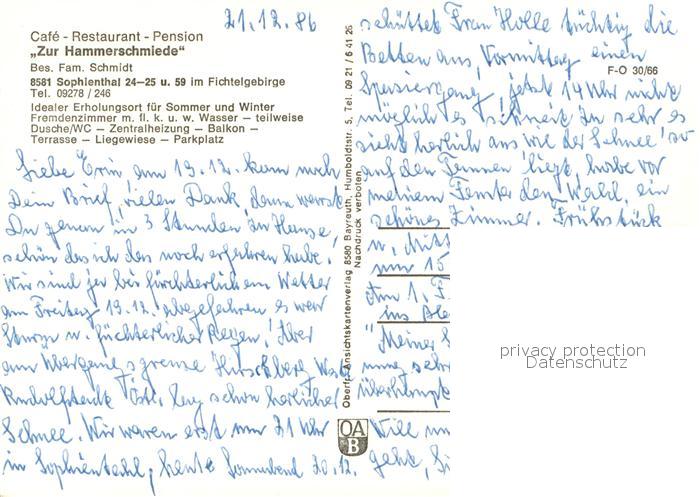 21.12.86
Café - Restaurant - Pension
„Zur Hammerschmiede"
Bes. Fam. Schmidt
8581 Sophienthal 24—25 u. 59 im Fichtelgebirge
Tel. 09278 / 246
Idealer Erholungsort für Sommer und Winter
Fremdenzimmer m. fl. k. u. w. Wasser — teilweise
Dusche/WC — Zentralheizung — Balkon —
Terrasse — Liegewiese — Parkplatz
Liebe Erin am 19.12. kam noch
Dein Brief, vielen Dank dann warst
Du genau in 3 Stunden zu Hause,
schön das ich das noch erfahren habe.
Wir sind ja bei fürchterlichem Wetter
am Freitag 19.12. abgefahren es war
Sturm u. fürchterlicher Regen! Aber
am Übergangsgrenze Hirschberg
Rudolfstein lag schon herrlicher
Schnee. Wir waren erst um 21 Uhr
in Sophiental, heute Sonnabend 20.12.
Oberfr. Ansichtskartenverlag 8580 Bayreuth, Humboldtstr. 5, Tel. 09 21 / 6 41 26
Nachdruck verboten
OA
B
F-O 30/66
schüttet Frau Holle tüchtig die
Betten aus, Vormittag einen
Spaziergang, jetzt 14 Uhr nicht
möglich es schneit zu sehr es
sieht herrlich aus wie der Schnee so
auf den Tannen liegt, habe vor
meinem Fenster den Wald, ein
schönes Zimmer. Frühstück
u. Mitt
um 15
Am 1. F
ins
"Meiner
ung sehr
überhaupt
Will
geht,
privacy protection
Datenschutz